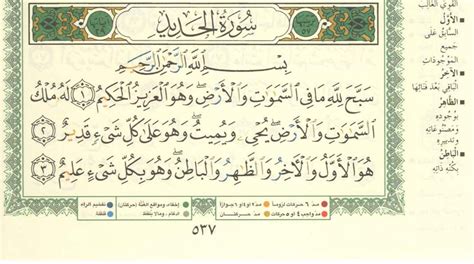 سُورَةُ الْحَدِيدِ
بِسْمِ اللَّهِ الرَّحْمَٰنِ الرَّحِيمِ
سَبَّحَ لِلَّهِ مَا فِي السَّمَٰوَٰتِ وَالْأَرْضِ ۖ وَهُوَ الْعَزِيزُ الْحَكِيمُ ١ لَهُ مُلْكُ
السَّمَٰوَٰتِ وَالْأَرْضِ ۖ يُحْيِي وَيُمِيتُ ۖ وَهُوَ عَلَىٰ كُلِّ شَيْءٍ قَدِيرٌ ٢
هُوَ الْأَوَّلُ وَالْآخِرُ وَالظَّٰهِرُ وَالْبَاطِنُ ۖ وَهُوَ بِكُلِّ شَيْءٍ عَلِيمٌ ٣
القوي الغالب
الأوَّلُ
السابق على
جميع
الموجودات
الآخِرُ
الباقي بعد فنائها
الظَّاهِرُ
بوجوده
ومصنوعاته
وتدبيره
الباطِنُ
بكُنه ذاته
مدّ ٦ حركات لزوماً
مدّ ٢ أو ٤ أو ٦ جوازاً
إخفاء، ومواقع الغُنَّة (حركتان)
تفخيم الراء
مدّ واجب ٤ أو ٥ حركات
مدّ حركتان
إدغام، وما لا يُلفظ
قلقلة
٥٣٧